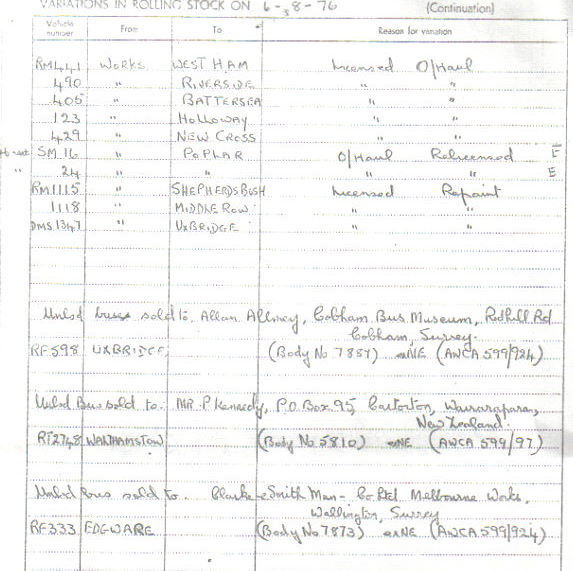 VARIATIONS IN ROLLING STOCK ON 6-8-76 (Continuation)
Vehicle number From To Reason for variation
RM441 WORKS WEST HAM Licensed O/Haul
490 " RIVERSIDE " "
405 " BATTERSEA " "
123 " HOLLOWAY " "
429 " NEW CROSS " "
SM 16 " POPLAR O/Haul Relicensed E
" 24 " " " " E
RM1115 " SHEPHERDS BUSH Licensed Repaint
1118 " MIDDLE ROW " "
DMS 1347 " UXBRIDGE " "
Unlsd buses sold to. Allan Allmey, Cobham Bus Museum, Redhill Rd
Cobham, Surrey.
RF598 UXBRIDGE (Body No 7887) (AWCA 599/924)
Unlsd Bus sold to. MR. P Kennedy, P.O. Box 95,
New Zealand.
RT2748 WALTHAMSTOW (Body No 5810) (AWCA 599/97)
Unlsd bus sold to. Clarke-Smith Man- Co Ltd Melbourne Works,
Wallington, Surrey
RF333 EDGWARE (Body No 7873) (AWCA 599/924)